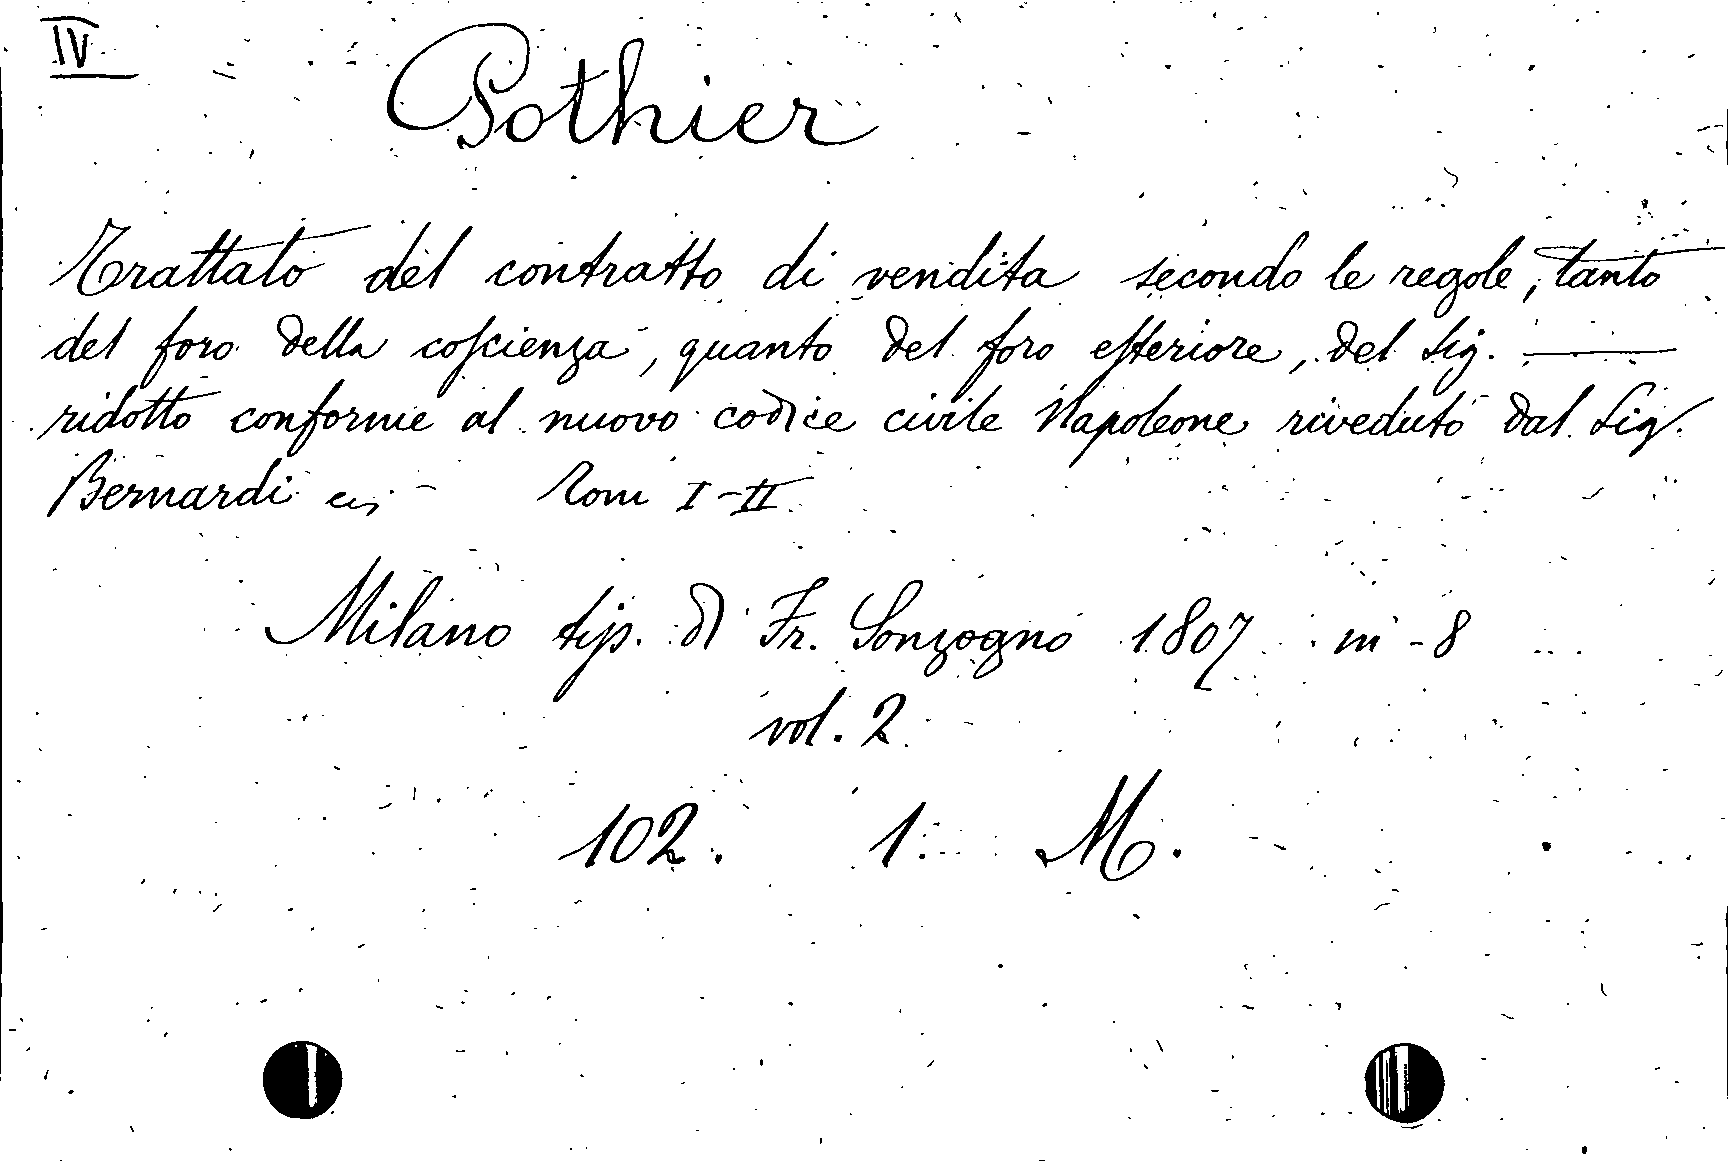 IV
Pothier
Trattato del contratto di vendita secondo le regole, tanto
del foro della coſcienza, quanto del foro eſteriore, del Sig. ———
ridotto conforme al nuovo codice civile Napoleone riveduto dal Sig.
Bernardi Tomi I-II
Milano tip. di Fr. Sonzogno 1807 in-8
vol. 2
102. 1. M.